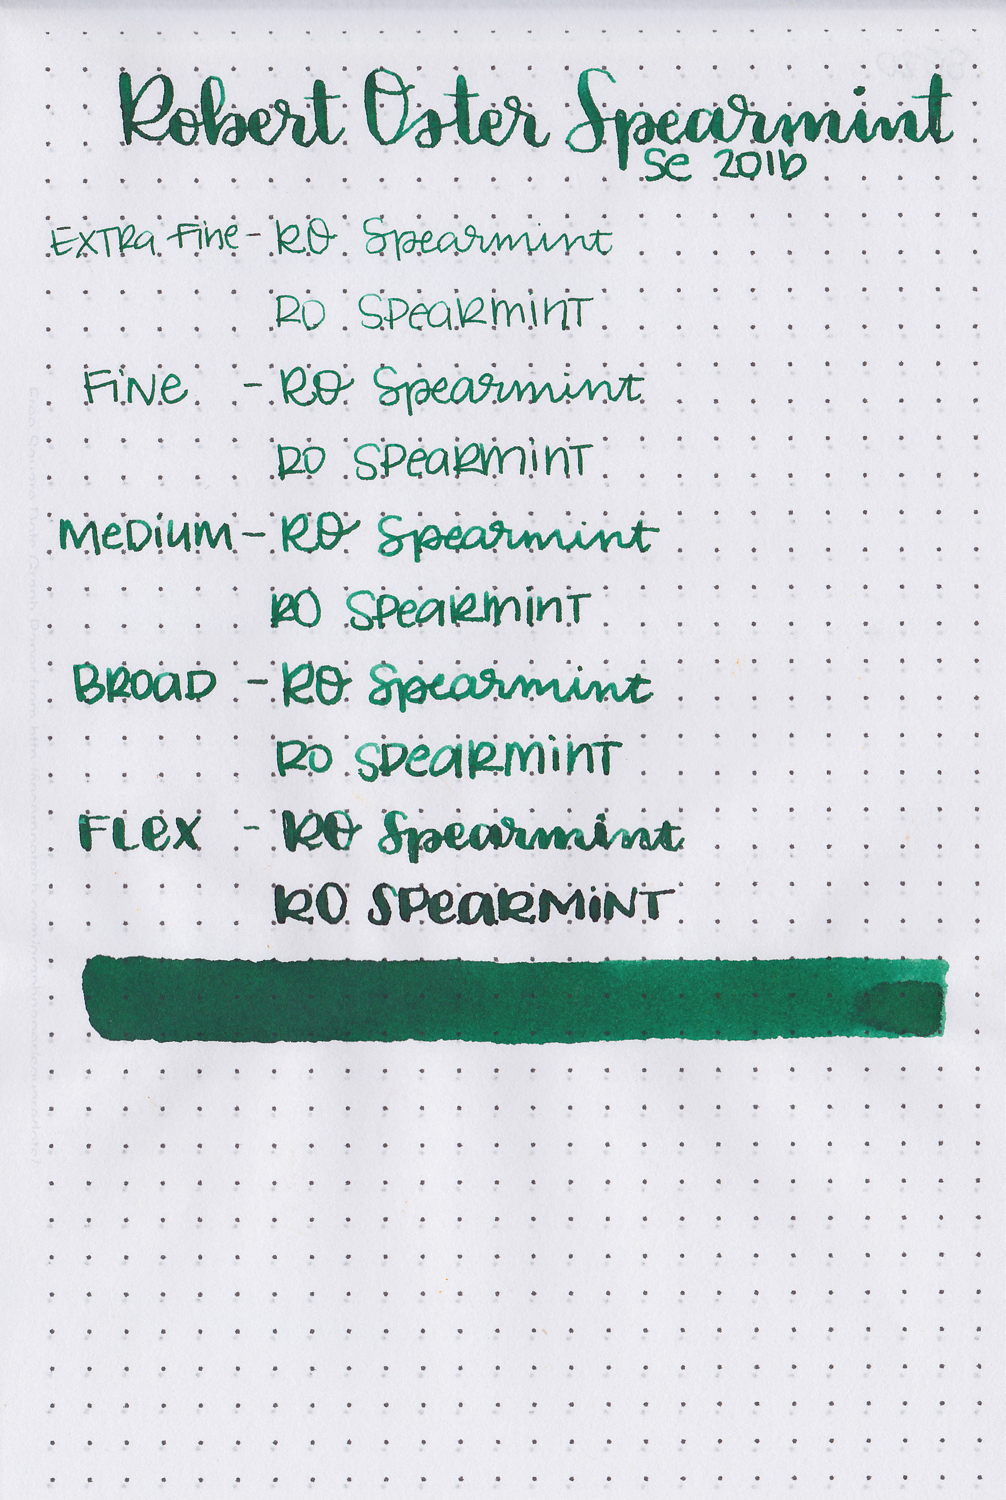 Robert Oster Spearmint
SE 2016
Extra Fine - RO Spearmint
RO SPeaRMiNT
FiNe - RO Spearmint
RO SPeaRMiNT
MeDiuM - RO Spearmint
RO SPeaRMiNT
BROaD - RO Spearmint
RO SPeaRMiNT
FLex - RO Spearmint
RO SPeaRMiNT